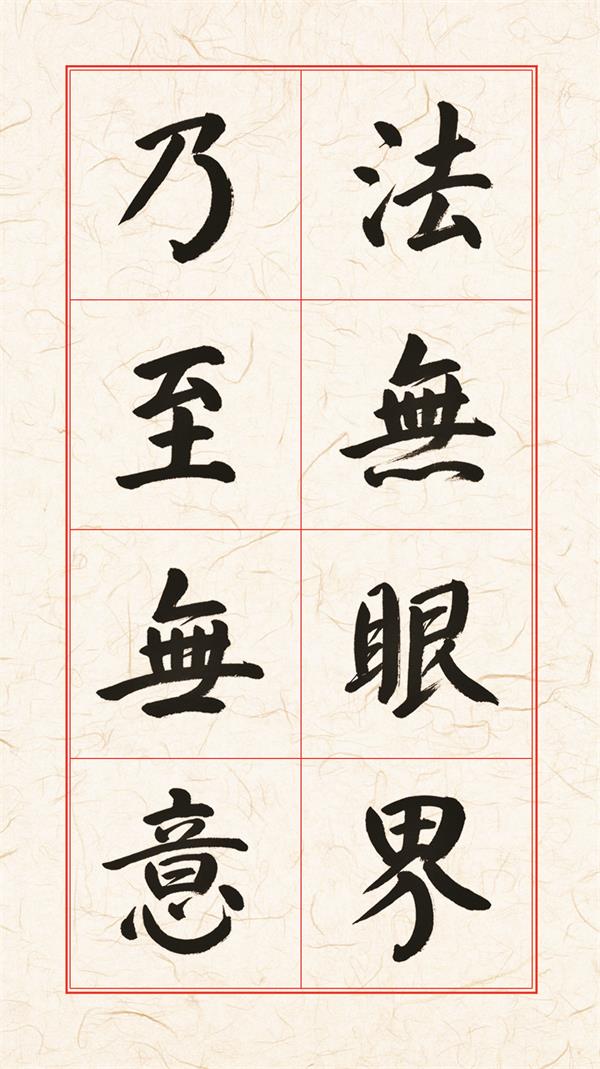 法無眼界
乃至無意